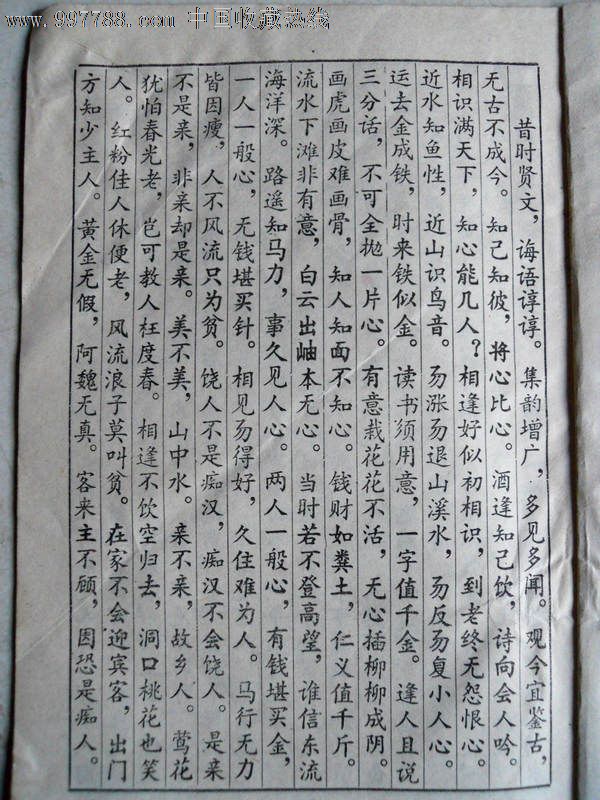 www.997788.com 中国收藏热线
昔时贤文，诲语谆谆。集韵增广，多见多闻。观今宜鉴古，
无古不成今。知己知彼，将心比心。酒逢知己饮，诗向会人吟。
相识满天下，知心能几人？相逢好似初相识，到老终无怨恨心。
近水知鱼性，近山识鸟音。易涨易退山溪水，易反易复小人心。
运去金成铁，时来铁似金。读书须用意，一字值千金。逢人且说
三分话，不可全抛一片心。有意栽花花不活，无心插柳柳成阴。
画虎画皮难画骨，知人知面不知心。钱财如粪土，仁义值千斤。
流水下滩非有意，白云出岫本无心。当时若不登高望，谁信东流
海洋深。路遥知马力，事久见人心。两人一般心，有钱堪买金，
一人一般心，无钱堪买针。相见易得好，久住难为人。马行无力
皆因瘦，人不风流只为贫。饶人不是痴汉，痴汉不会饶人。是亲
不是亲，非亲却是亲。美不美，山中水。亲不亲，故乡人。莺花
犹怕春光老，岂可教人枉度春。相逢不饮空归去，洞口桃花也笑
人。红粉佳人休便老，风流浪子莫叫贫。在家不会迎宾客，出门
方知少主人。黄金无假，阿魏无真。客来主不顾，因恐是痴人。